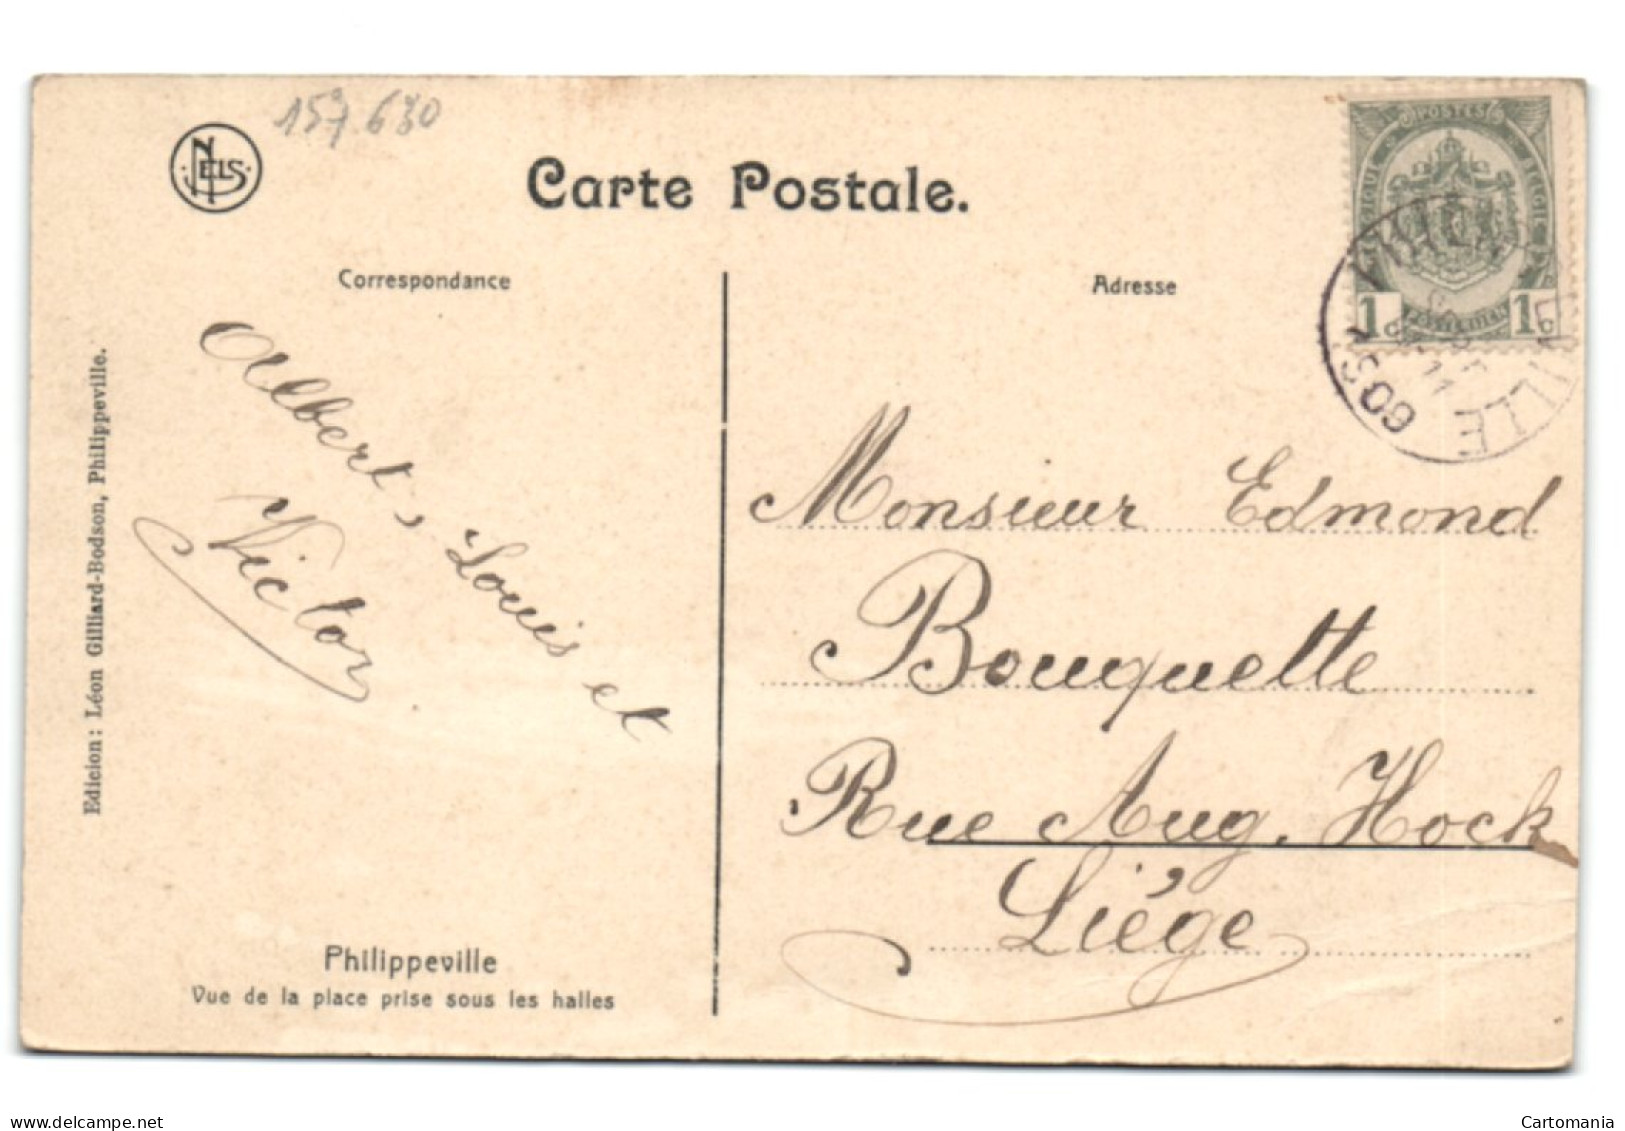 157 630
NELS
Carte Postale.
POSTES
1c 1c
PHILIPPEVILLE
11
1908
Correspondance
Adresse
Albert, Louis et
Victor
Monsieur Edmond
Bouquette
Rue Aug. Hock
Liége
Edicion: Léon Gilliard-Bodson, Philippeville.
Philippeville
Vue de la place prise sous les halles
www.delcampe.net
Cartomania